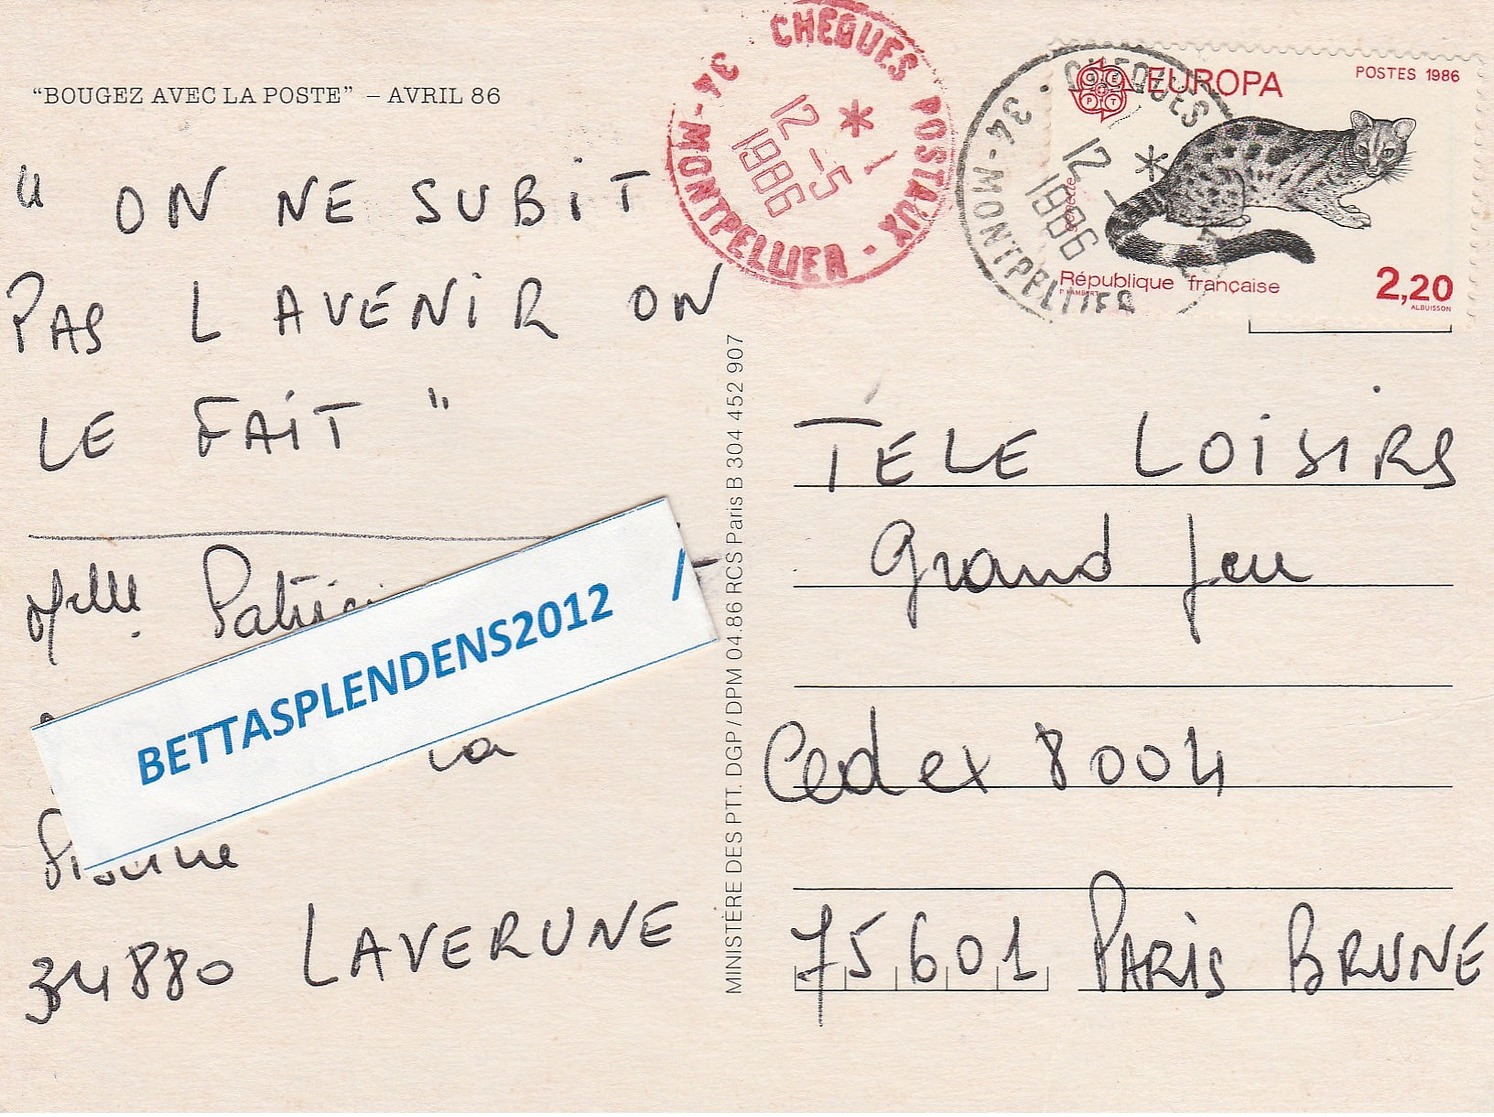 "BOUGEZ AVEC LA POSTE" – AVRIL 86
" ON NE SUBIT
PAS L AVENIR ON
LE FAIT "
Melle
BETTASPLENDENS2012
la
34880 LAVERUNE
MINISTÈRE DES PTT. DGP / DPM 04.86 RCS Paris B 304 452 907
34 - MONTPELLIER - CHEQUES POSTAUX
* 12 - 5
1986
34 - MONTPELLIER
CHEQUES
* 12 -
1986
CEPT EUROPA
POSTES 1986
genette
République française
2,20
LAMBERT
ALBUISSON
TELE LOISIRS
Grand Jeu
Cedex 8004
75601 PARIS BRUNE